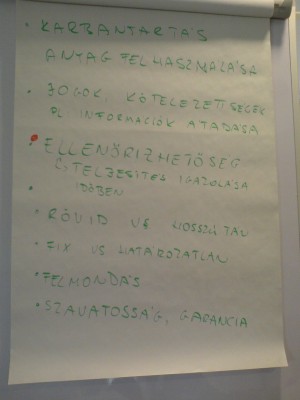 • KARBANTARTÁS
ANYAG FELHASZNÁLÁSA
• JOGOK, KÖTELEZETTSÉGEK
PL INFORMÁCIÓK ÁTADÁSA
• ELLENŐRIZHETŐSÉG
TELJESÍTÉS IGAZOLÁSA
IDŐBEN
•
• RÖVID VS HOSSZÚ TÁV
• FIX VS HATÁROZATLAN
• FELMONDÁS
• SZAVATOSSÁG, GARANCIA